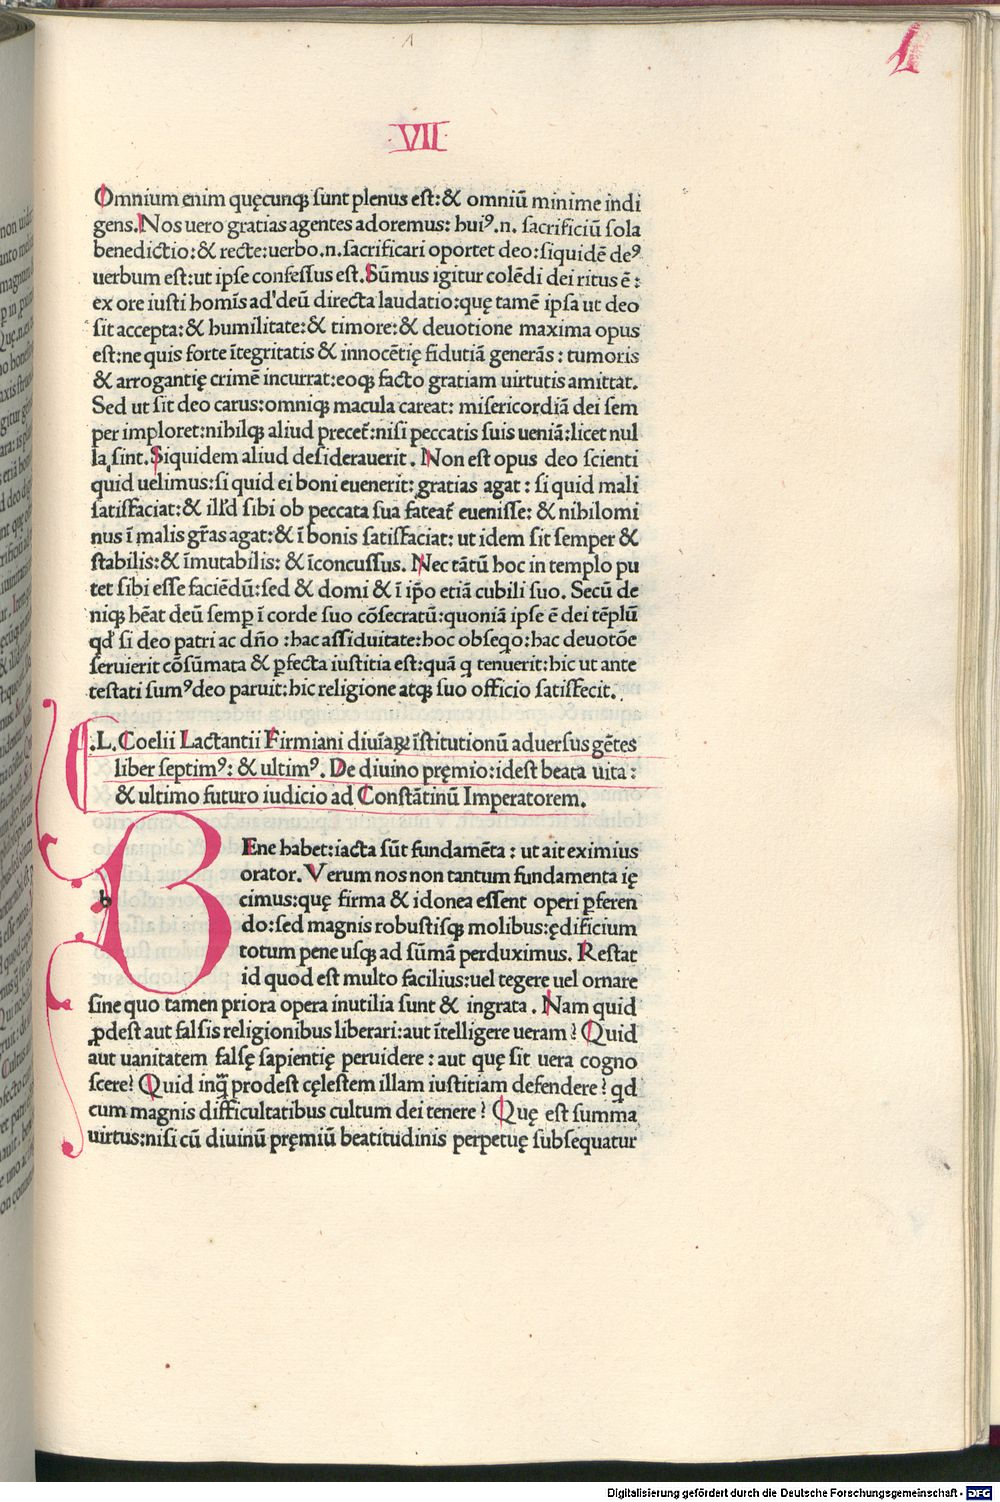 1
1
VII
Omnium enim quęcunqꝫ sunt plenus est:& omniū minime indi
gens. Nos uero gratias agentes adoremus: huiꝰ.n. sacrificiū sola
benedictio:& recte:uerbo.n.sacrificari oportet deo:siquidē deꝰ
uerbum est:ut ipse confessus est. Sūmus igitur colēdi dei ritus ē:
ex ore iusti homīs ad'deū directa laudatio:quę tamē ipsa ut deo
sit accepta:& humilitate:& timore:& deuotione maxima opus
est:ne quis forte ītegritatis & innocētię fidutiā generās: tumoris
& arrogantię crimē incurrat:eoqꝫ facto gratiam uirtutis amittat.
Sed ut sit deo carus:omniqꝫ macula careat: misericordiā dei sem
per imploret:nihilqꝫ aliud precet᷑:nisi peccatis suis ueniā:licet nul
la sint. Siquidem aliud desiderauerit. Non est opus deo scienti
quid uelimus:si quid ei boni euenerit: gratias agat: si quid mali
satisfaciat:& ill'd sibi ob peccata sua fateat᷑ euenisse: & nihilomi
nus ī malis gr̄as agat:& ī bonis satisfaciat: ut idem sit semper &
stabilis:& īmutabilis: & īconcussus. Nec tātū hoc in templo pu
tet sibi esse faciēdū:sed & domi & ī ip̄o etiā cubili suo. Secū de
niqꝫ hēat deū semꝑ ī corde suo cōsecratū:quoniā ipse ē dei tēplū
qd' si deo patri ac dn̄o :hac assiduitate:hoc obseqo:hac deuotōe
seruierit cōsūmata & ꝑfecta iustitia est:quā q tenuerit:hic ut ante
testati sumꝰ deo paruit:hic religione atqꝫ suo officio satisfecit.
.L. Coelii Lactantii Firmiani diuīaꝝ īstitutionū aduersus gētes
liber septimꝰ: & ultimꝰ. De diuino pręmio:idest beata uita:
& ultimo futuro iudicio ad Constātinū Imperatorem.
BEne habet:iacta sūt fundamēta: ut ait eximius
orator. Verum nos non tantum fundamenta ię
b cimus:quę firma & idonea essent operi ꝑferen
do:sed magnis robustisqꝫ molibus:ędificium
totum pene usqꝫ ad sūmā perduximus. Restat
id quod est multo facilius:uel tegere uel ornare
sine quo tamen priora opera inutilia sunt & ingrata. Nam quid
ꝓdest aut falsis religionibus liberari:aut ītelligere ueram? Quid
aut uanitatem falsę sapientię peruidere: aut quę sit uera cogno
scere? Quid inqͣ prodest cęlestem illam iustitiam defendere? qd
cum magnis difficultatibus cultum dei tenere? Quę est summa
uirtus:nisi cū diuinū pręmiū beatitudinis perpetuę subsequatur
Digitalisierung gefördert durch die Deutsche Forschungsgemeinschaft - DFG